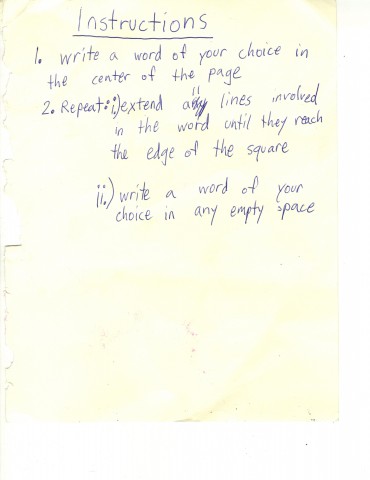 Instructions
1. write a word of your choice in
the center of the page
2. Repeat: i.) extend all lines involved
in the word until they reach
the edge of the square
ii.) write a word of your
choice in any empty space